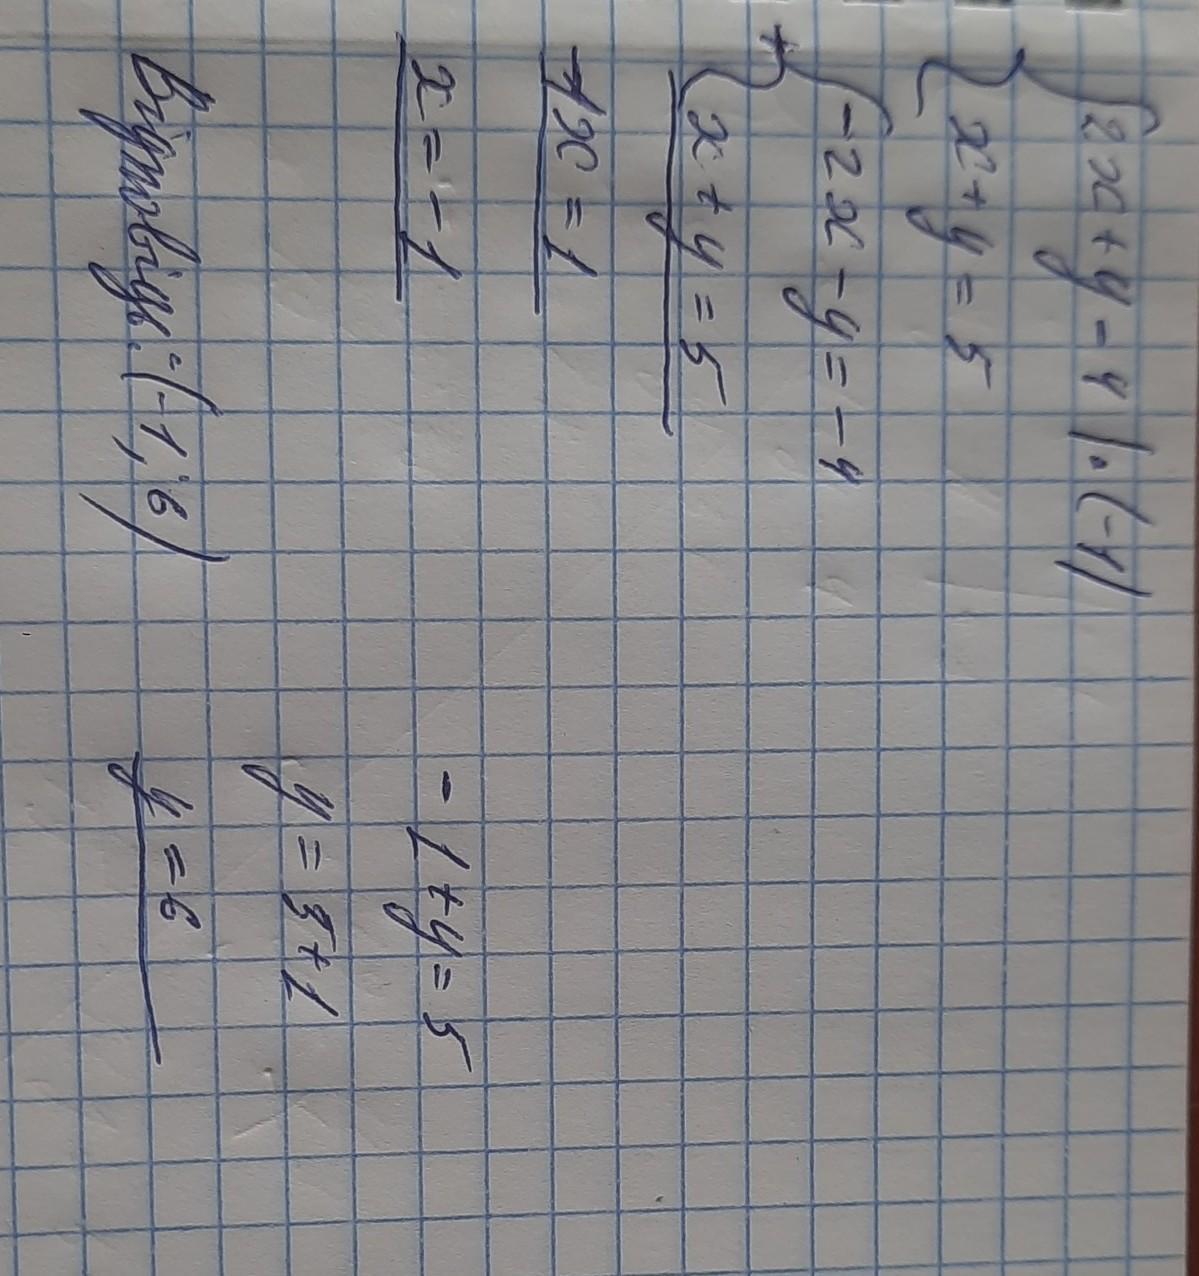 {2x + y - 4 | · (-1)
{x + y = 5
+ {-2x - y = -4
{x + y = 5
-1x = 1
x = -1
- 1 + y = 5
y = 5 + 1
y = 6
Відповідь: (-1; 6)